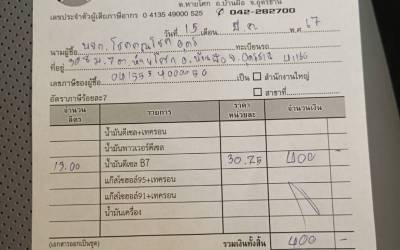 ต.หายโศก อ.บ้านผือ จ.อุดรธานี
เลขประจำตัวผู้เสียภาษีอากร 0 4135 49000 525 042-282700
วันที่ 15 เดือน มี.ค. พ.ศ. 67
นามผู้ซื้อ หจก. โชค อุดร ทะเบียนรถ
ที่อยู่
เลขภาษีของผู้ซื้อ เป็น สำนักงานใหญ่
อัตราภาษีร้อยละ7 สาขาที่
จำนวนลิตร รายการ ราคาหน่วยละ จำนวนเงิน
น้ำมันดีเซล+เทครอน
น้ำมันพาวเวอร์ดีเซล
13.00 น้ำมันดีเซล B7 30.75 400
แก๊สโซฮอล์95+เทครอน
แก๊สโซฮอล์91+เทครอน
น้ำมันเครื่อง
(เอกสารออกเป็นชุด) รวมเงินทั้งสิ้น 400